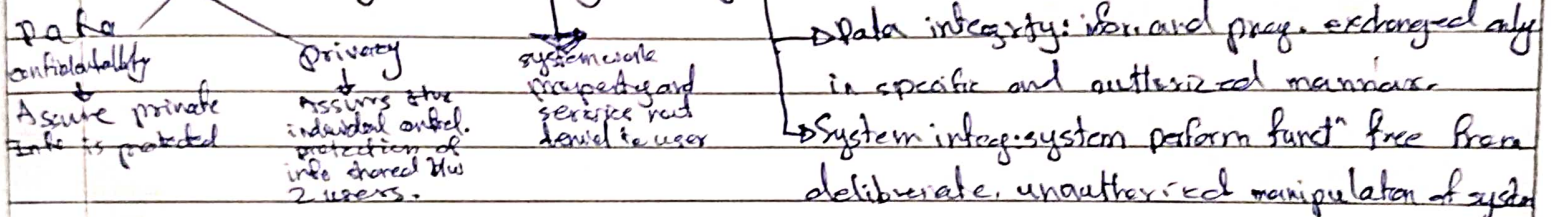 Data
confidentallity
↓
Assure private
Info is protected
privacy
↓
Assures the
individual control.
protection of
info shared b/w
2 users.
system work
properly and
service not
denied to user
→ Data integrity: infor. and prog. exchanged only
in specific and authorized mannar.
→ System integ: system perform functⁿ free from
deliberate, unauthorized manipulation of system